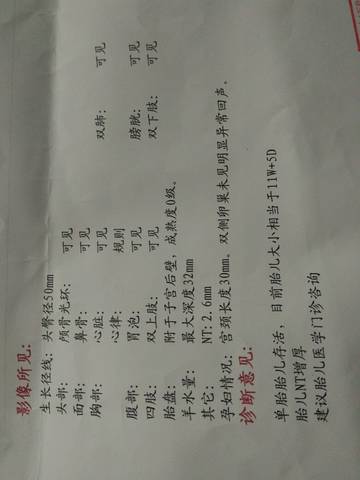 影像所见:
生长径线: 头臀径50mm
头部: 颅骨光环: 可见
面部: 鼻骨: 可见
胸部: 心脏: 可见 双肺: 可见
心律: 规则
腹部: 胃泡: 可见 膀胱: 可见
四肢: 双上肢: 可见 双下肢: 可见
胎盘: 附于子宫后壁，成熟度0级。
羊水量: 最大深度32mm
其它: NT:2.6mm
孕妇情况: 宫颈长度30mm。双侧卵巢未见明显异常回声。
诊断意见:
单胎胎儿存活，目前胎儿大小相当于11W+5D
胎儿NT增厚
建议胎儿医学门诊咨询